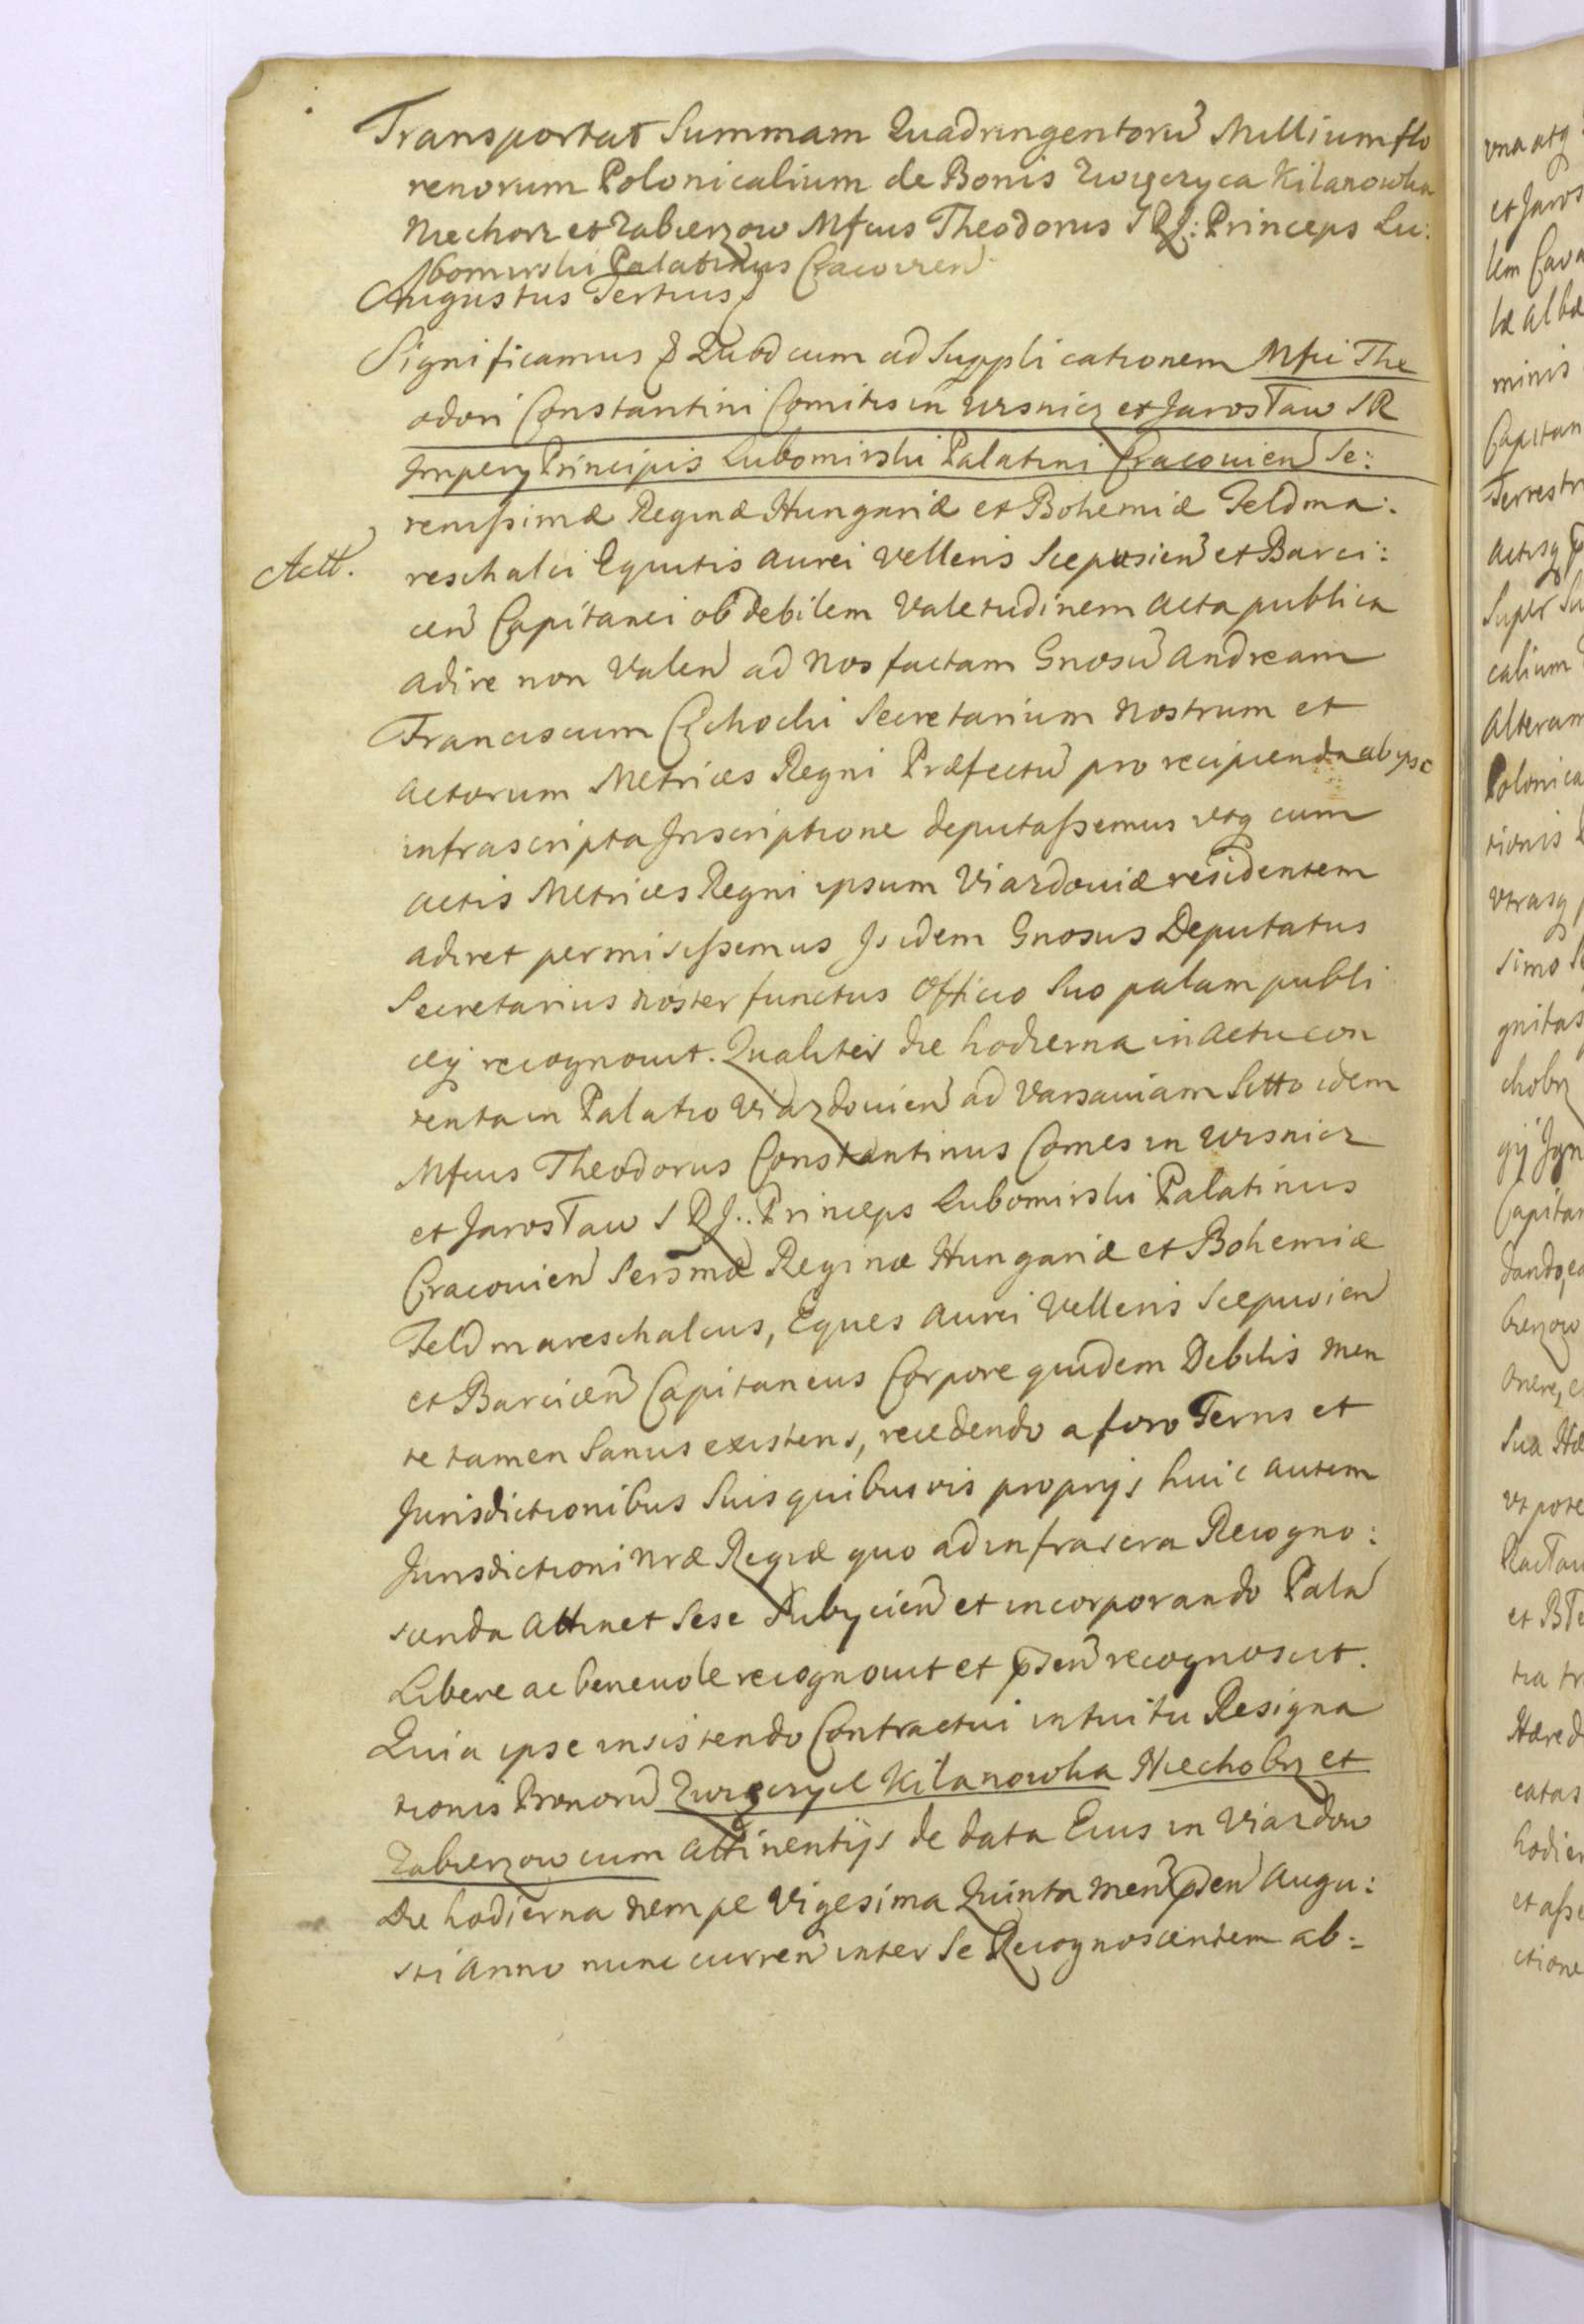 Transportat Summam Quadringentorũ Millium flo
renorum Polonicalium de Bonis Zwięczyca Kilanowka
Niechorz et Zabierzow Mfcus Theodorus S R J: Princeps Lu:
bomirski Palatinus Cracovien
Augustus Tertius
Significamus Quod cum ad Supplicationem Mfci The
odori Constantini Comitis in Wisnicz et Jarosław S R
Impery Principis Lubomirski Palatini Cracovien Se:
renissimæ Reginæ Hungariæ et Bohemiæ Feldma:
Actt.
reschalci Equitis Aurei Velleris Scepusien et Barci:
cen Capitanei ob debilem Valetudinem Acta publica
adire non Valen ad Nos factam Gnosũ Andream
Franciscum Cichocki Secretarium Nostrum et
Actorum Metrices Regni Præfectũ pro recipienda ab ipso
infrascripta Inscriptione deputassemus utq cum
Actis Metrices Regni ipsum Viazdoviæ residentem
adiret permisissemus Is idem Gnosus Deputatus
Secretarius Noster functus Officio Suo palam publi
ceq recognovit. Qualiter die hodierna in Actu con
tenta in Palatio Viazdovien ad Varsaviam Sitto idem
Mfcus Theodorus Constantinus Comes in Wisnicz
et Jarosław S R J.. Princeps Lubomirski Palatinus
Cracovien Sersmæ Reginæ Hungariæ et Bohemiæ
Feldmareschalcus, Eques Aurei Velleris Scepusien
et Barcicen Capitaneus Corpore quidem Debilis Men
te tamen Sanus existens, recedendo a foro Terris et
Jurisdictionibus Suis quibusvis proprijs huic autem
Jurisdictioni Nræ Regiæ quo ad infrascra Recogno:
scenda Attinet Sese Subycien et incorporando Palã
Libere ac benevole recognovit et pñsen recognoscit.
Quia ipse insistendo Contractui intuitu Resigna
tionis Bonorũ Zwięczyce Kilanowka Niechobrz et
Zabierzow cum Attinentijs de data Eius in Viazdow
Die hodierna Nempe Vigesima Quinta Men pñsen Augu:
sti Anno nunc curren inter Se Recognoscentem ab: